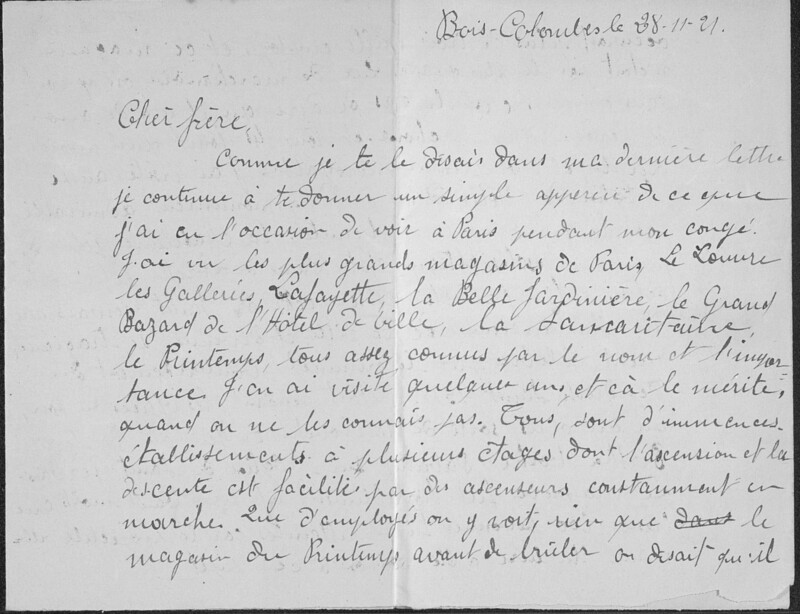 Bois-Colombes le 28-11-21.
Cher frère,
Comme je te le disais dans ma dernière lettre
je continue à te donner un simple apperçu de ce que
j'ai eu l'occasion de voir à Paris pendant mon congé.
J'ai vu les plus grands magasins de Paris, Le Louvre
les Galleries, Lafayette, la Belle Jardinière, le Grand
Bazard de l'Hôtel de ville, la
le Printemps, tous assez connus par le nom et l'impor=
tance. J'en ai visité quelques uns, et çà le mérite,
quand on ne les connais pas. Tous, sont d'immences
établissements à plusieurs étages dont l'ascension et la
descente est facilité par des ascenseurs constamment en
marche. Que d'employés on y voit, rien que dans le
magasin du Printemps, avant de brûler on disait qu'il